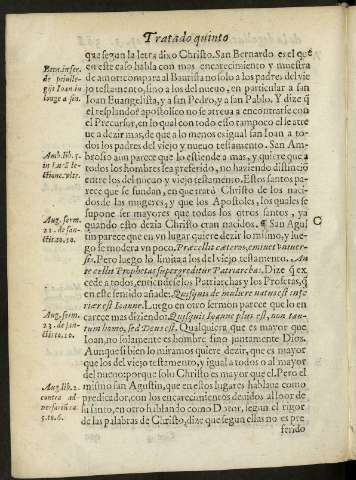 Tratado quinto
que segun la letra dixo Christo. San Bernardo es el que
en este caso habla con mas encarecimiento y muestra
de amor: compara al Bautista no solo a los padres del vie
jo testamento, sino a los del nueuo, en particular a san
Ioan Euangelista, y a san Pedro, y a san Pablo. Y dize q̃
el resplandor apostolico no se atreua a encontrarse con
el Precursor, en lo qual con todo esso tampoco el se atre
ue a dezir mas, de que a lo menos es igual san Ioan a to-
dos los padres del viejo y nueuo testamento. San Am-
brosio aun parece que lo estiende a mas, y quiere que a
todos los hombres sea preferido, no haziendo distinciõ
entre los del nueuo y viejo testamento. Estos santos pa-
rece que se fundan, en que tratò Christo de los naci-
dos de las mugeres, y que los Apostoles, los quales se
supone ser mayores que todos los otros santos, ya
quando esto dezia Christo eran nacidos. ¶ San Agu
stin parece que en vn lugar quiere dezir lo mismo, y lue-
go se modera vn poco. Præcellit cæteros, eminet vniuer-
sis. Pero luego lo limita a los del viejo testamento. An-
te cellit Prophetas supergreditur Patriarchas. Dize q̃ ex
cede a todos, entiendese los Patriarchas y los Profetas, q̃
en este sentido añade. Quisquis de muliere natus est infe-
rior est Ioanne. Luego en otro sermon parece que lo en
carece mas diziendo. Quisquis Ioanne plus est, non tan-
tum homo, sed Deus est. Qualquiera que es mayor que
Ioan, no solamente es hombre, sino juntamente Dios.
Aunque si bien lo miramos quiere dezir, que es mayor
que los del viejo testamento, y igual a todos o al mayor
del nueuo: porque solo Christo es mayor que el. Pero el
mismo san Agustin, que en estos lugares hablaua como
predicador, con los encarecimientos deuidos al loor de
su santo, en otro hablando como Dotor, segun el rigor
de las palabras de Christo, dize que segun ellas no es pre
ferido
Bern. in ser.
de priuile-
gijs Ioan in
longe a sin.
Amb. lib. 5.
in Luc.
Aug. serm.
21. de san-
ctis. to. 10.
C
Aug. serm.
23. de san-
ctis. to. 10.
Aug. lib. 2.
contra ad-
uersariũ c.
5. to. 6.